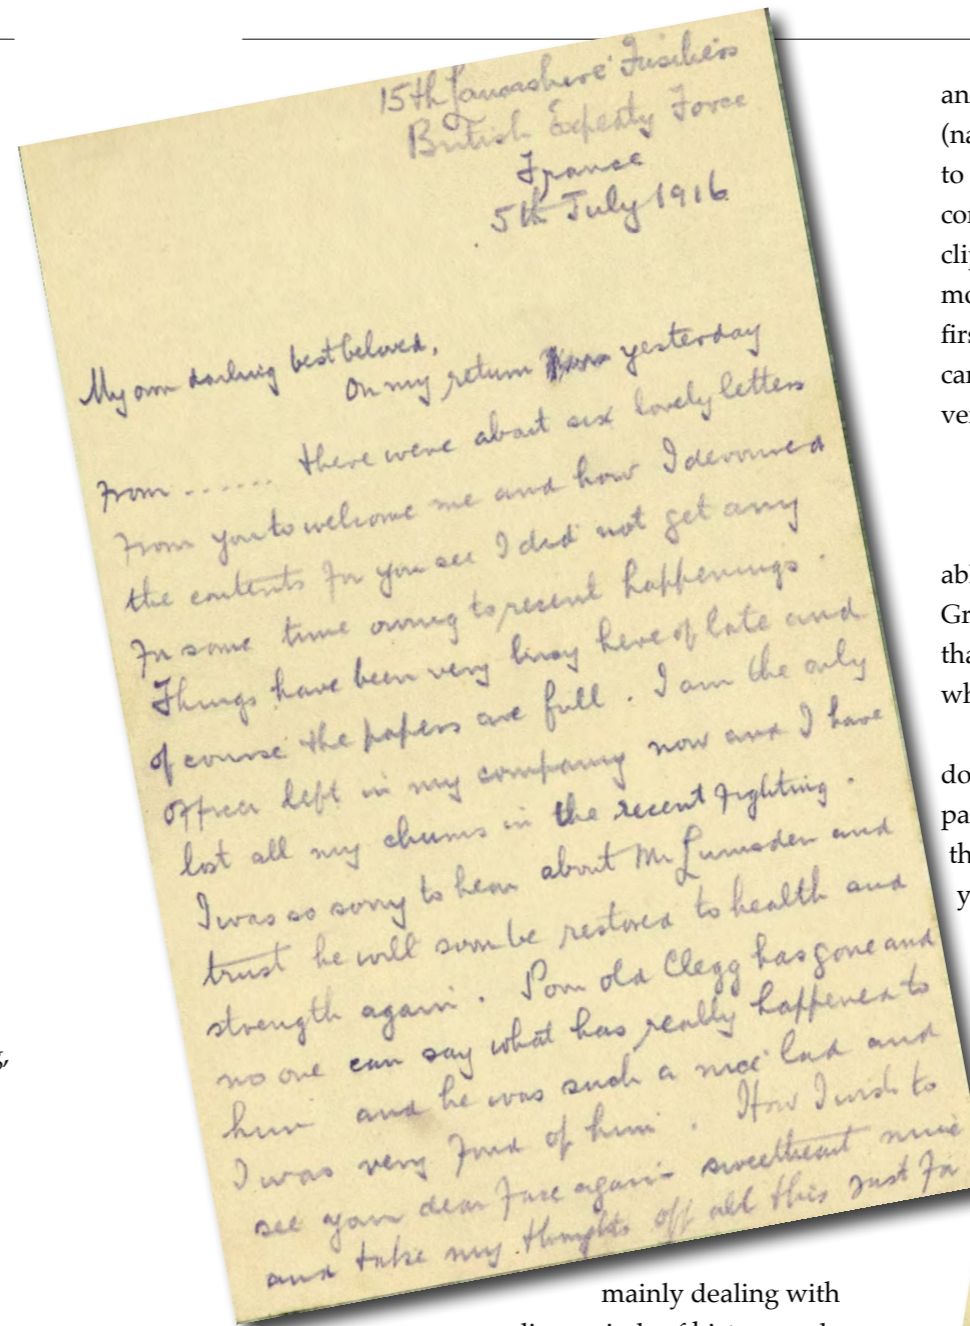 15th Lancashire Fusiliers
British Expedty Force
France
5th July 1916
My own darling best beloved,
On my return yesterday
From ....... there were about six lovely letters
From you to welcome me and how I devoured
the contents For you see I did not get any
For some time owing to recent happenings.
Things have been very busy here of late and
of course the papers are full. I am the only
officer left in my company now and I have
lost all my chums in the recent Fighting.
I was so sorry to hear about Mr Lumsden and
trust he will soon be restored to health and
strength again. Poor old Clegg has gone and
no one can say what has really happened to
him and he was such a nice lad and
I was very Fond of him. How I wish to
see your dear Face again sweetheart mine
and take my thoughts off all this Just For
mainly dealing with
an
(na
to
cor
cli
mo
firs
car
ve
abl
Gr
tha
wh
do
pa
th
y